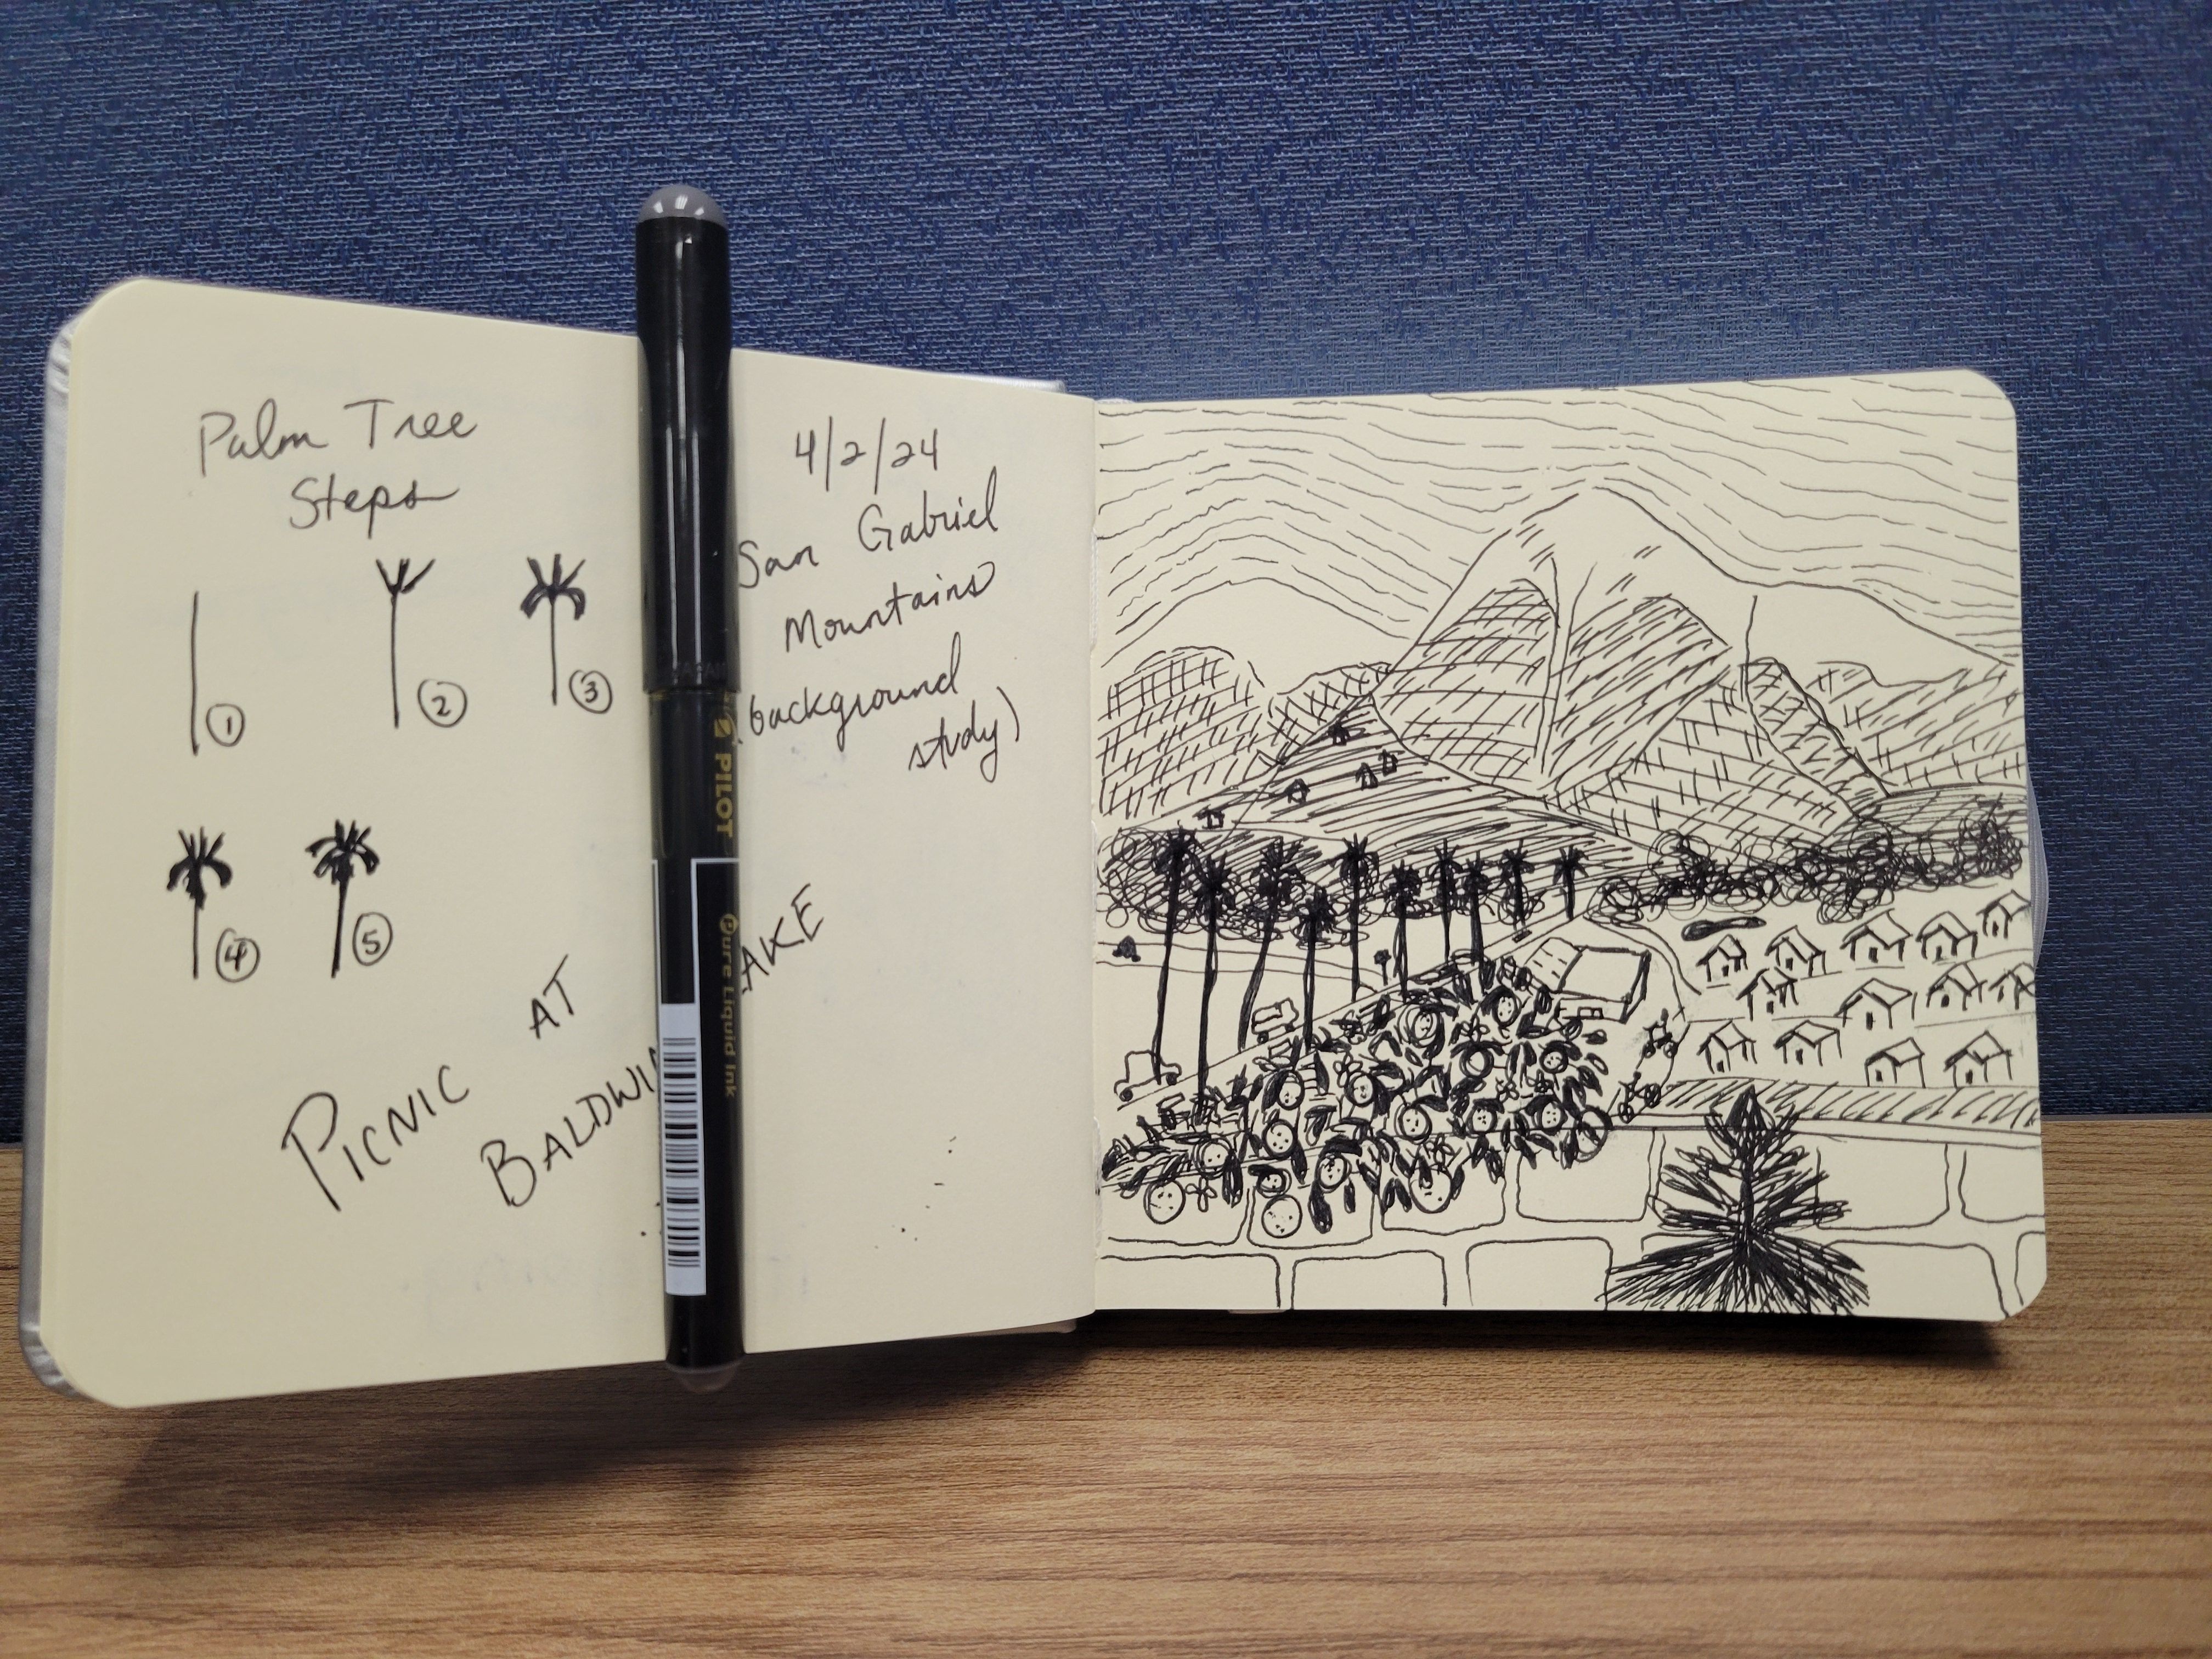 Palm Tree
Steps
1
2
3
4
5
PICNIC AT
BALDWIN
AKE
4/2/24
San Gabriel
Mountains
(background
study)
PILOT
Pure Liquid Ink